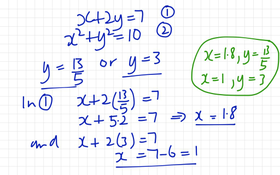 x+2y=7 ①
x²+y²=10 ②
y=13/5 or y=3
In ① x+2(13/5)=7
x+5.2=7 ⇒ x=1.8
and x+2(3)=7
x=7-6=1
x=1.8, y=13/5
x=1, y=3